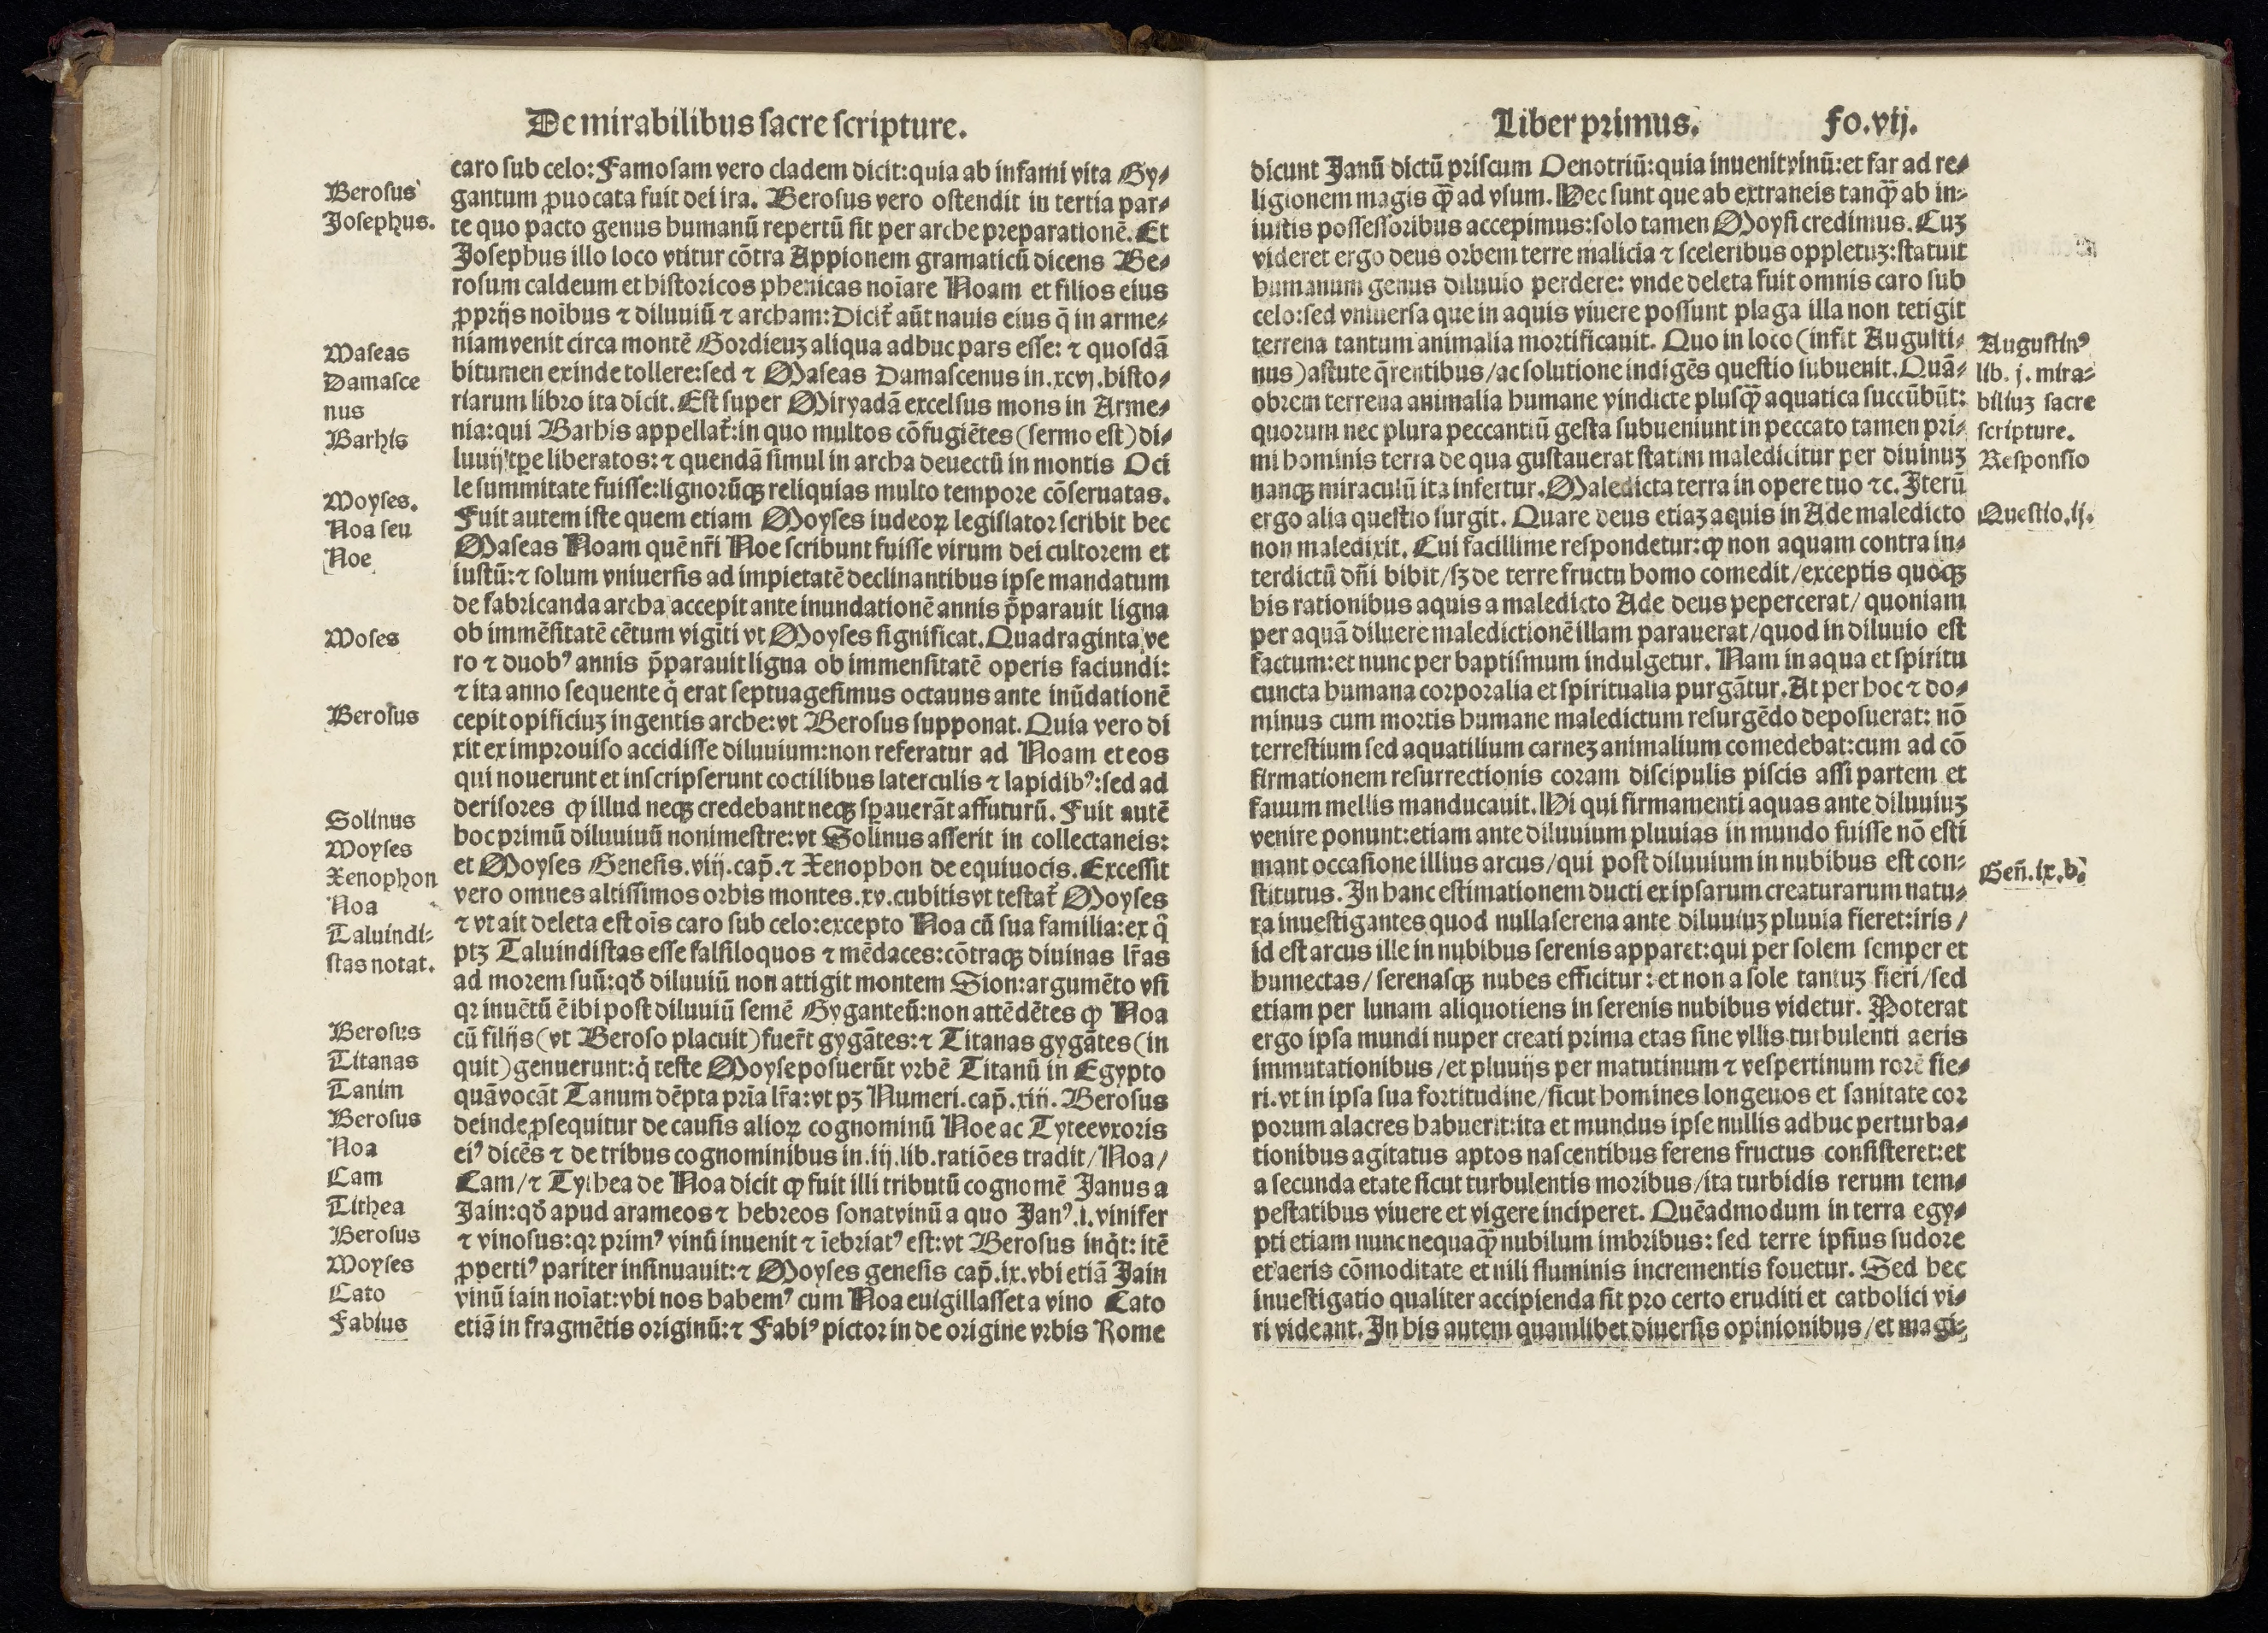 De mirabilibus sacre scripture.
Berosus
Josephus.
Maseas
Damasce
nus
Barhis
Moyses.
Noa seu
Noe
Moses
Berosus
Solinus
Moyses
Xenophon
Noa
Taluindi-
stas notat.
Berosus
Titanas
Tanim
Berosus
Noa
Cam
Tithea
Berosus
Moyses
Cato
Fabius
caro sub celo: Famosam vero cladem dicit: quia ab infami vita Gy-
gantum ꝓuocata fuit dei ira. Berosus vero ostendit in tertia par-
te quo pacto genus humanū repertū sit per arche preparationē. Et
Josephus illo loco vtitur cōtra Appionem gramaticū dicens Be-
rosum caldeum et historicos phenicas noīare Noam et filios eius
ꝓprijs noībus ⁊ diluuiū ⁊ archam: Dicit̄ aūt nauis eius q̄ in arme-
niam venit circa montē Gordieuꝫ aliqua adhuc pars esse: ⁊ quosdā
bitumen exinde tollere: sed ⁊ Maseas Damascenus in .xcvj. histo-
riarum libro ita dicit. Est super Miryadā excelsus mons in Arme-
nia: qui Barhis appellat̄: in quo multos cōfugiētes (sermo est) di-
luuij tꝑe liberatos: ⁊ quendā simul in archa deuectū in montis Oci
le summitate fuisse: lignorūqꝫ reliquias multo tempore cōseruatas.
Fuit autem iste quem etiam Moyses iudeoꝝ legislator scribit hec
Maseas Noam quē nr̄i Noe scribunt fuisse virum dei cultorem et
iustū: ⁊ solum vniuersis ad impietatē declinantibus ipse mandatum
de fabricanda archa accepit ante inundationē annis p̄parauit ligna
ob immēsitatē cētum vigīti vt Moyses significat. Quadraginta ve
ro ⁊ duobꝰ annis p̄parauit ligna ob immensitatē operis faciundi:
⁊ ita anno sequente q̇ erat septuagesimus octauus ante inūdationē
cepit opificiuꝫ ingentis arche: vt Berosus supponat. Quia vero di
xit ex improuiso accidisse diluuium: non referatur ad Noam et eos
qui nouerunt et inscripserunt coctilibus laterculis ⁊ lapidibꝰ: sed ad
derisores ꝙ illud neqꝫ credebant neqꝫ spauerāt affuturū. Fuit autē
hoc primū diluuiuū nonimestre: vt Solinus asserit in collectaneis:
et Moyses Genesis .viij. cap̄. ⁊ Xenophon de equiuocis. Excessit
vero omnes altissimos orbis montes .xv. cubitis vt testat̄ Moyses
⁊ vt ait deleta est oīs caro sub celo: excepto Noa cū sua familia: ex q̄
ptꝫ Taluindistas esse falsiloquos ⁊ mēdaces: cōtraqꝫ diuinas lr̄as
ad morem suū: qđ diluuiū non attigit montem Sion: argumēto vsi
qꝛ inuētū ē ibi post diluuiū semē Gyganteū: non attēdētes ꝙ Noa
cū filijs (vt Beroso placuit) fuer̄t gygātes: ⁊ Titanas gygātes (in
quit) genuerunt: q̇ teste Moyse posuerūt vrbē Titanū in Egypto
quā vocāt Tanum dēpta pr̄ia lr̄a: vt pꝫ Numeri. cap̄. xiij. Berosus
deinde ꝓsequitur de causis alioꝝ cognominū Noe ac Tytee vxoris
eiꝰ dicēs ⁊ de tribus cognominibus in .iij. lib. ratiōes tradit / Noa /
Cam / ⁊ Tythea de Noa dicit ꝙ fuit illi tributū cognomē Janus a
Jain: qđ apud arameos ⁊ hebreos sonat vinū a quo Janꝰ .i. vinifer
⁊ vinosus: qꝛ primꝰ vinū inuenit ⁊ īebriatꝰ est: vt Berosus inq̇t: itē
ꝓpertiꝰ pariter insinuauit: ⁊ Moyses genesis cap̄. ix. vbi etiā Jain
vinū iain noīat: vbi nos habemꝰ cum Noa euigillasset a vino Cato
etiā in fragmētis originū: ⁊ Fabiꝰ pictor in de origine vrbis Rome
Liber primus. Fo. vij.
dicunt Janū dictū priscum Oenotriū: quia inuenit vinū: et far ad re-
ligionem magis qꝫ̄ ad vsum. Hec sunt que ab extraneis tanqꝫ̄ ab in-
iustis possessoribus accepimus: solo tamen Moysi credimus. Cuꝫ
videret ergo deus orbem terre malicia ⁊ sceleribus oppletuꝫ: statuit
humanum genus diluuio perdere: vnde deleta fuit omnis caro sub
celo: sed vniuersa que in aquis viuere possunt plaga illa non tetigit
terrena tantum animalia mortificauit. Quo in loco (infit Augusti-
nus) astute q̄rentibus / ac solutione indigēs questio subuenit. Quā-
obrem terrena animalia humane vindicte plusqꝫ̄ aquatica succūbūt:
quorum nec plura peccantiū gesta subueniunt in peccato tamen pri-
mi hominis terra de qua gustauerat statim maledicitur per diuinuꝫ
nanqꝫ miraculū ita infertur. Maledicta terra in opere tuo ⁊c. Iterū
ergo alia questio surgit. Quare deus etiaꝫ aquis in Ade maledicto
non maledixit. Cui facillime respondetur: ꝙ non aquam contra in-
terdictū dn̄i bibit / sꝫ de terre fructu homo comedit / exceptis quoqꝫ
his rationibus aquis a maledicto Ade deus pepercerat / quoniam
per aquā diluere maledictionē illam parauerat / quod in diluuio est
factum: et nunc per baptismum indulgetur. Nam in aqua et spiritu
cuncta humana corporalia et spiritualia purgātur. At per hoc ⁊ do-
minus cum mortis humane maledictum resurgēdo deposuerat: nō
terrestium sed aquatilium carneꝫ animalium comedebat: cum ad cō
firmationem resurrectionis coram discipulis piscis assi partem et
fauum mellis manducauit. Hi qui firmamenti aquas ante diluuiuꝫ
venire ponunt: etiam ante diluuium pluuias in mundo fuisse nō esti
mant occasione illius arcus / qui post diluuium in nubibus est con-
stitutus. In hanc estimationem ducti ex ipsarum creaturarum natu-
ra inuestigantes quod nulla serena ante diluuiuꝫ pluuia fieret: iris /
id est arcus ille in nubibus serenis apparet: qui per solem semper et
humectas / serenasqꝫ nubes efficitur: et non a sole tantuꝫ fieri / sed
etiam per lunam aliquotiens in serenis nubibus videtur. Poterat
ergo ipsa mundi nuper creati prima etas sine vllis turbulenti aeris
immutationibus / et pluuijs per matutinum ⁊ vespertinum rorē fie-
ri. vt in ipsa sua fortitudine / sicut homines longeuos et sanitate cor
porum alacres habuerit: ita et mundus ipse nullis adhuc perturba-
tionibus agitatus aptos nascentibus ferens fructus consisteret: et
a secunda etate sicut turbulentis moribus / ita turbidis rerum tem-
pestatibus viuere et vigere inciperet. Quēadmodum in terra egy-
pti etiam nunc nequaqꝫ̄ nubilum imbribus: sed terre ipsius sudore
et aeris cōmoditate et nili fluminis incrementis fouetur. Sed hec
inuestigatio qualiter accipienda sit pro certo eruditi et catholici vi-
ri videant. In his autem quamlibet diuersis opinionibus / et magi-
Augustinꝰ
lib. j. mira-
biliuꝫ sacre
scripture.
Responsio
Questio. ij.
Gen̄. ix. b.